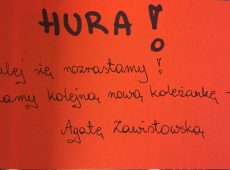 HURA!
alej się rozrastamy!
amy kolejną nową koleżankę -
Agatę Zawistowską